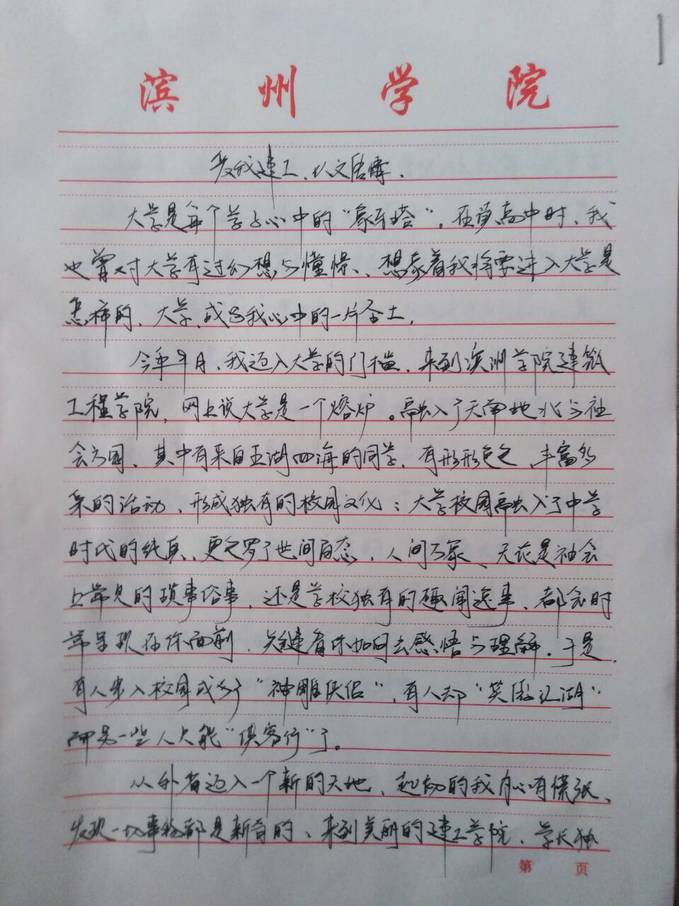 滨州学院
爱我建工、人文启情.
大学是每个学子心中的“象牙塔”。在尚高中时、我
也曾对大学有过幻想与憧憬、想象着我将要进入大学是
怎样的、大学、成了我心中的一片圣土.
今年9月、我迈入大学的门槛、来到滨州学院建筑
工程学院、网上说大学是一个熔炉。融入了天南地北与社
会方圆、其中有来自五湖四海的同学、有形形色色、丰富多
采的活动、形成独有的校园文化；大学校园融入了中学
时代的纯真、更包罗了世间百态、人间万象、无论是社会
上常见的琐事俗事、还是学校独有的趣闻逸事、都会时
常呈现在你面前、关键看你如何去感悟与理解.于是
有人步入校园成了“神雕侠侣”、有人却“笑傲江湖”
而另一些人只能“侠客行”了。
从外省迈入一个新的天地、起初的我内心有慌张、
发现一切事物都是新奇的、来到美丽的建工学院、学长独
第 页